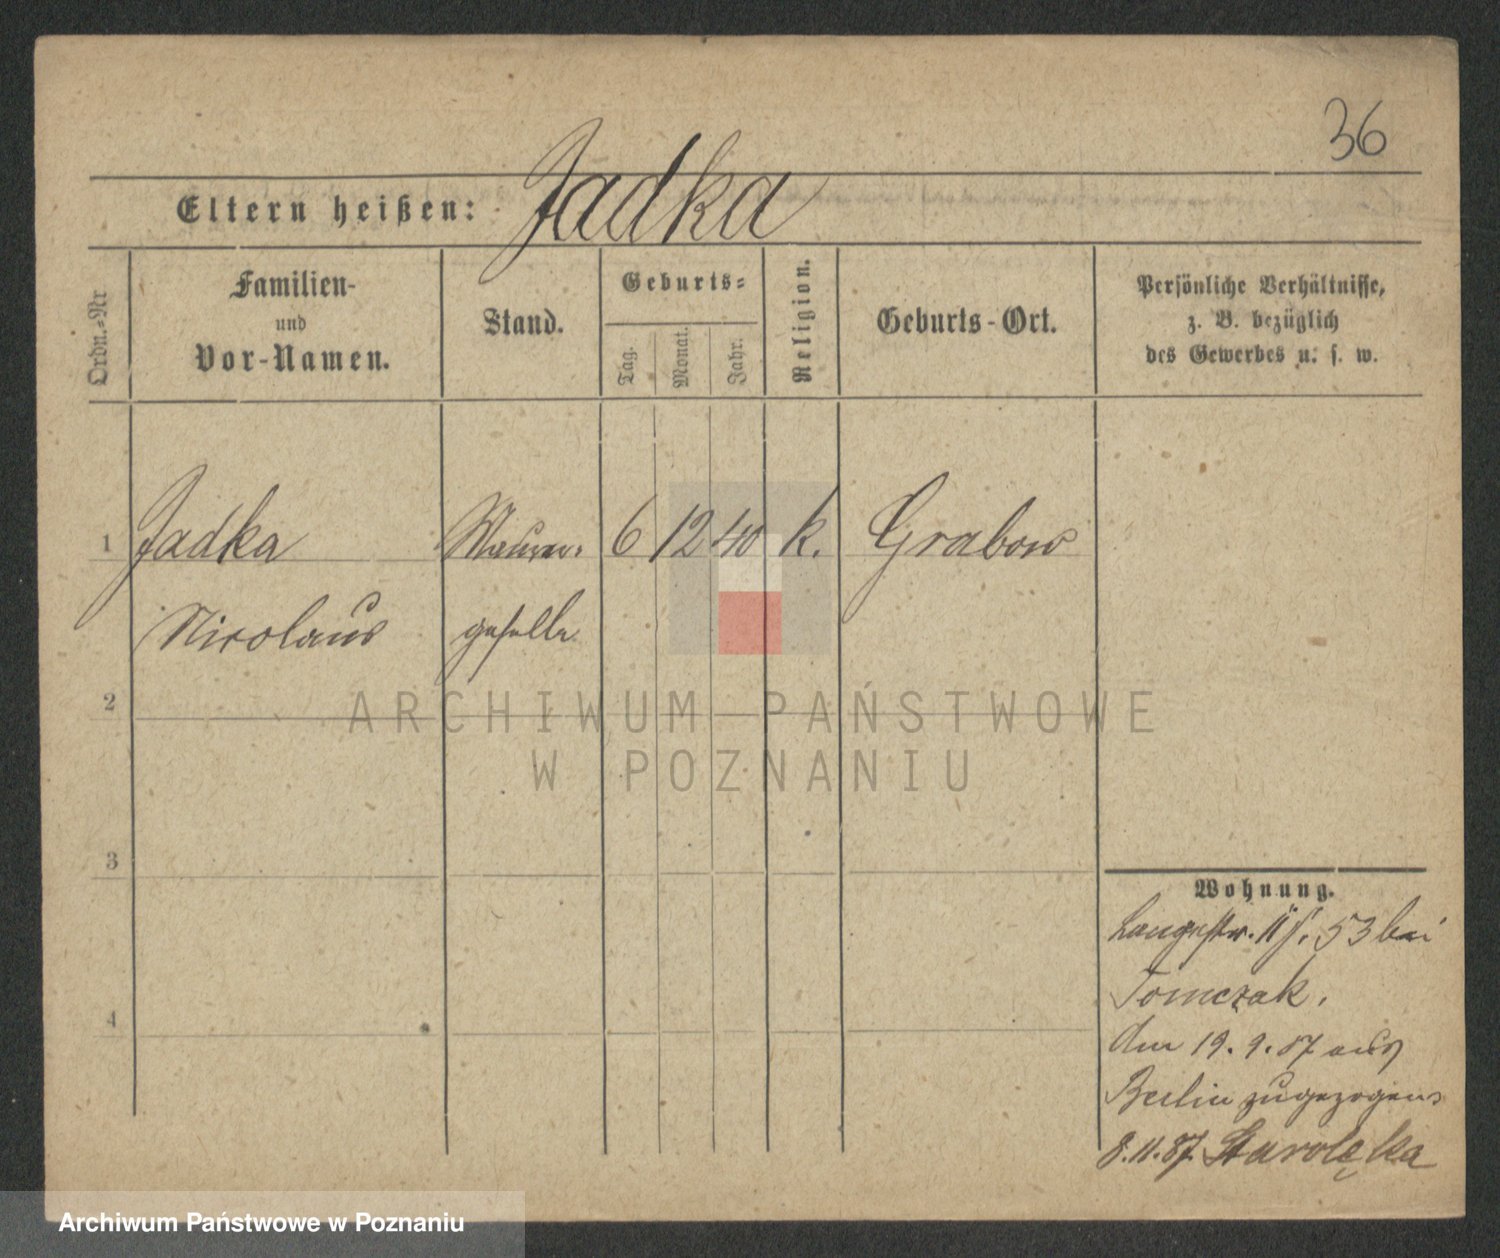 36
Eltern heißen: Jadka
Ordn.-Nr
Familien-
und
Vor-Namen.
Stand.
Geburts-
Tag.
Monat.
Jahr.
Religion.
Geburts-Ort.
Persönliche Verhältnisse,
z. B. bezüglich
des Gewerbes u. s. w.
1 Jadka Maurer- 6 12 40 k. Grabow
Nicolaus geselle
2
3
4
ARCHIWUM PAŃSTWOWE
W POZNANIU
Wohnung.
Langestr. 11 53 bei
Tomczak.
den 19. 9. 87 aus
Berlin zugezogen
8.11.87. Starolęka
Archiwum Państwowe w Poznaniu